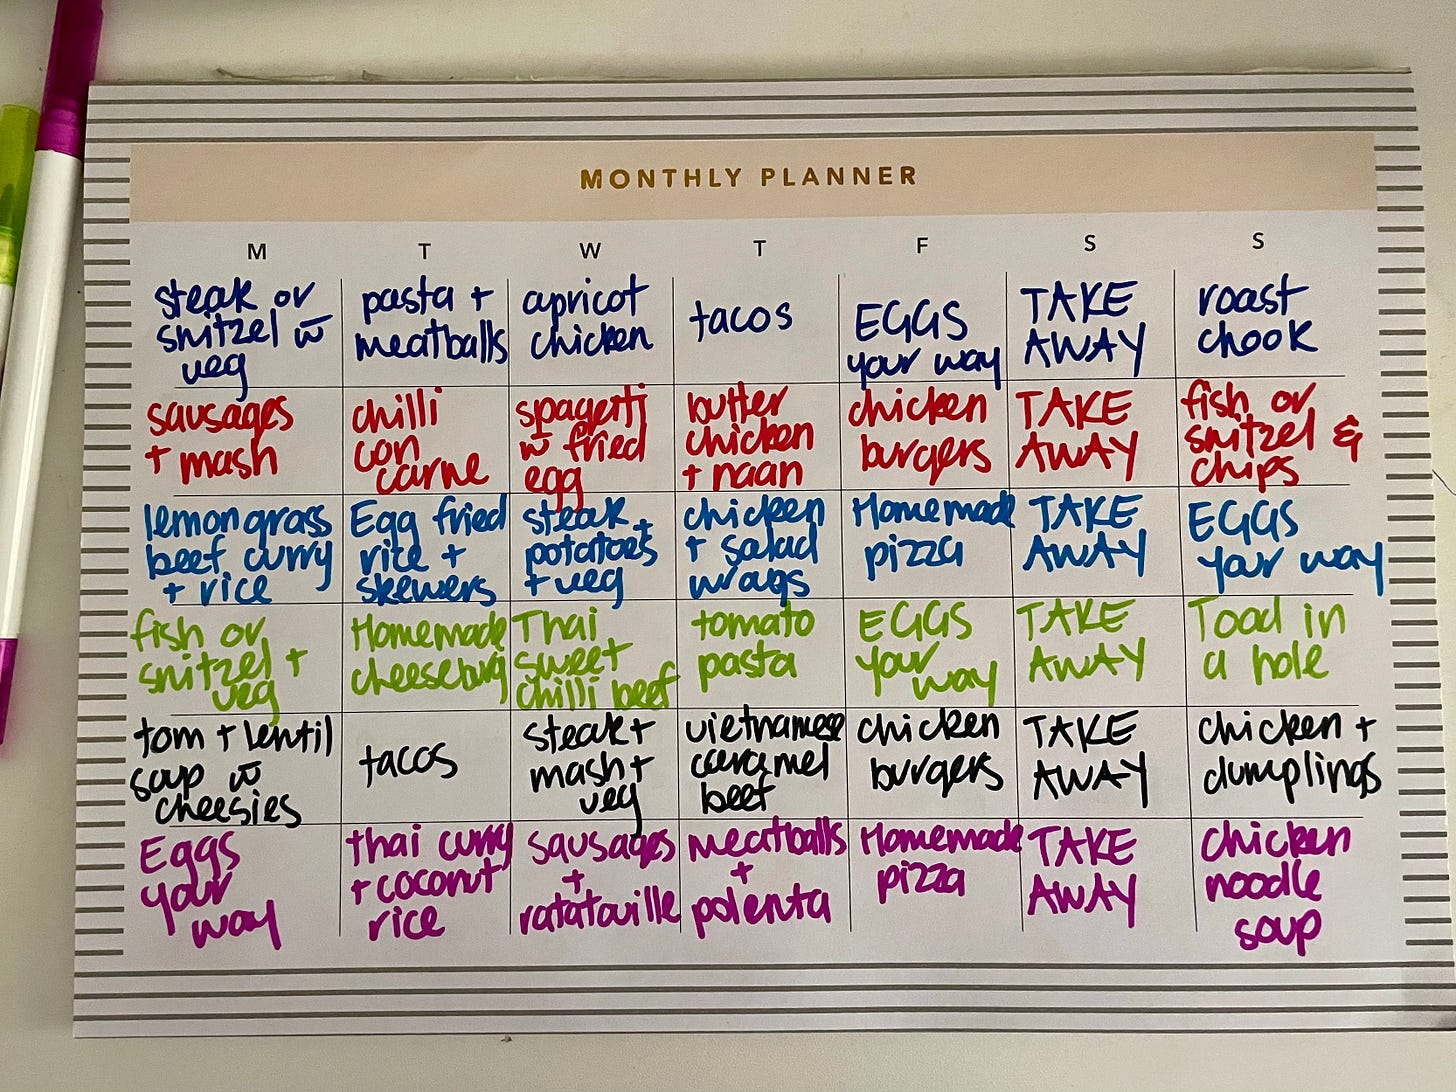 MONTHLY PLANNER
M T W T F S S
steak or
snitzel w̄
veg
pasta +
meatballs
apricot
chicken
tacos
EGGS
your way
TAKE
AWAY
roast
chook
sausages
+ mash
chilli
con
carne
spagetti
w̄ fried
egg
butter
chicken
+ naan
chicken
burgers
TAKE
AWAY
fish or
snitzel &
chips
lemongrass
beef curry
+ rice
Egg fried
rice +
skewers
steak +
potatoes
+ veg
chicken
+ salad
wraps
Homemade
pizza
TAKE
AWAY
EGGS
your way
fish or
snitzel +
veg
Homemade
cheeseburg
Thai
sweet
chilli beef
tomato
pasta
EGGS
your
way
TAKE
AWAY
Toad in
a hole
tom + lentil
soup w̄
cheesies
tacos
steak +
mash +
veg
vietnamese
caramel
beef
chicken
burgers
TAKE
AWAY
chicken +
dumplings
Eggs
your
way
thai curry
+ coconut
rice
sausages
+
ratatouille
meatballs
+
polenta
Homemade
pizza
TAKE
AWAY
chicken
noodle
soup